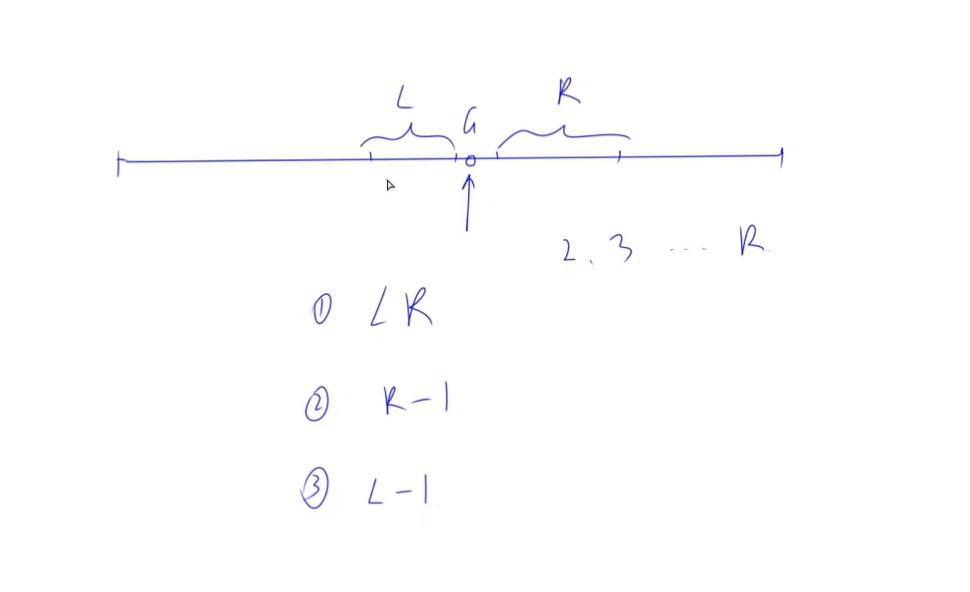 L R
G
2, 3 ... R
① L R
② R-1
③ L-1